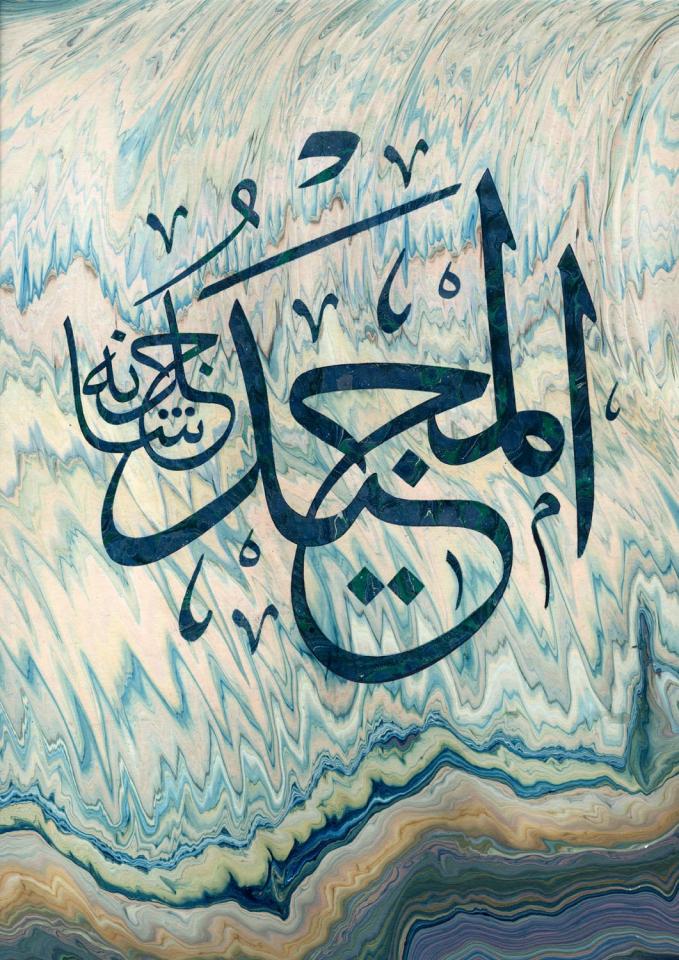 المجيد
جل شانه